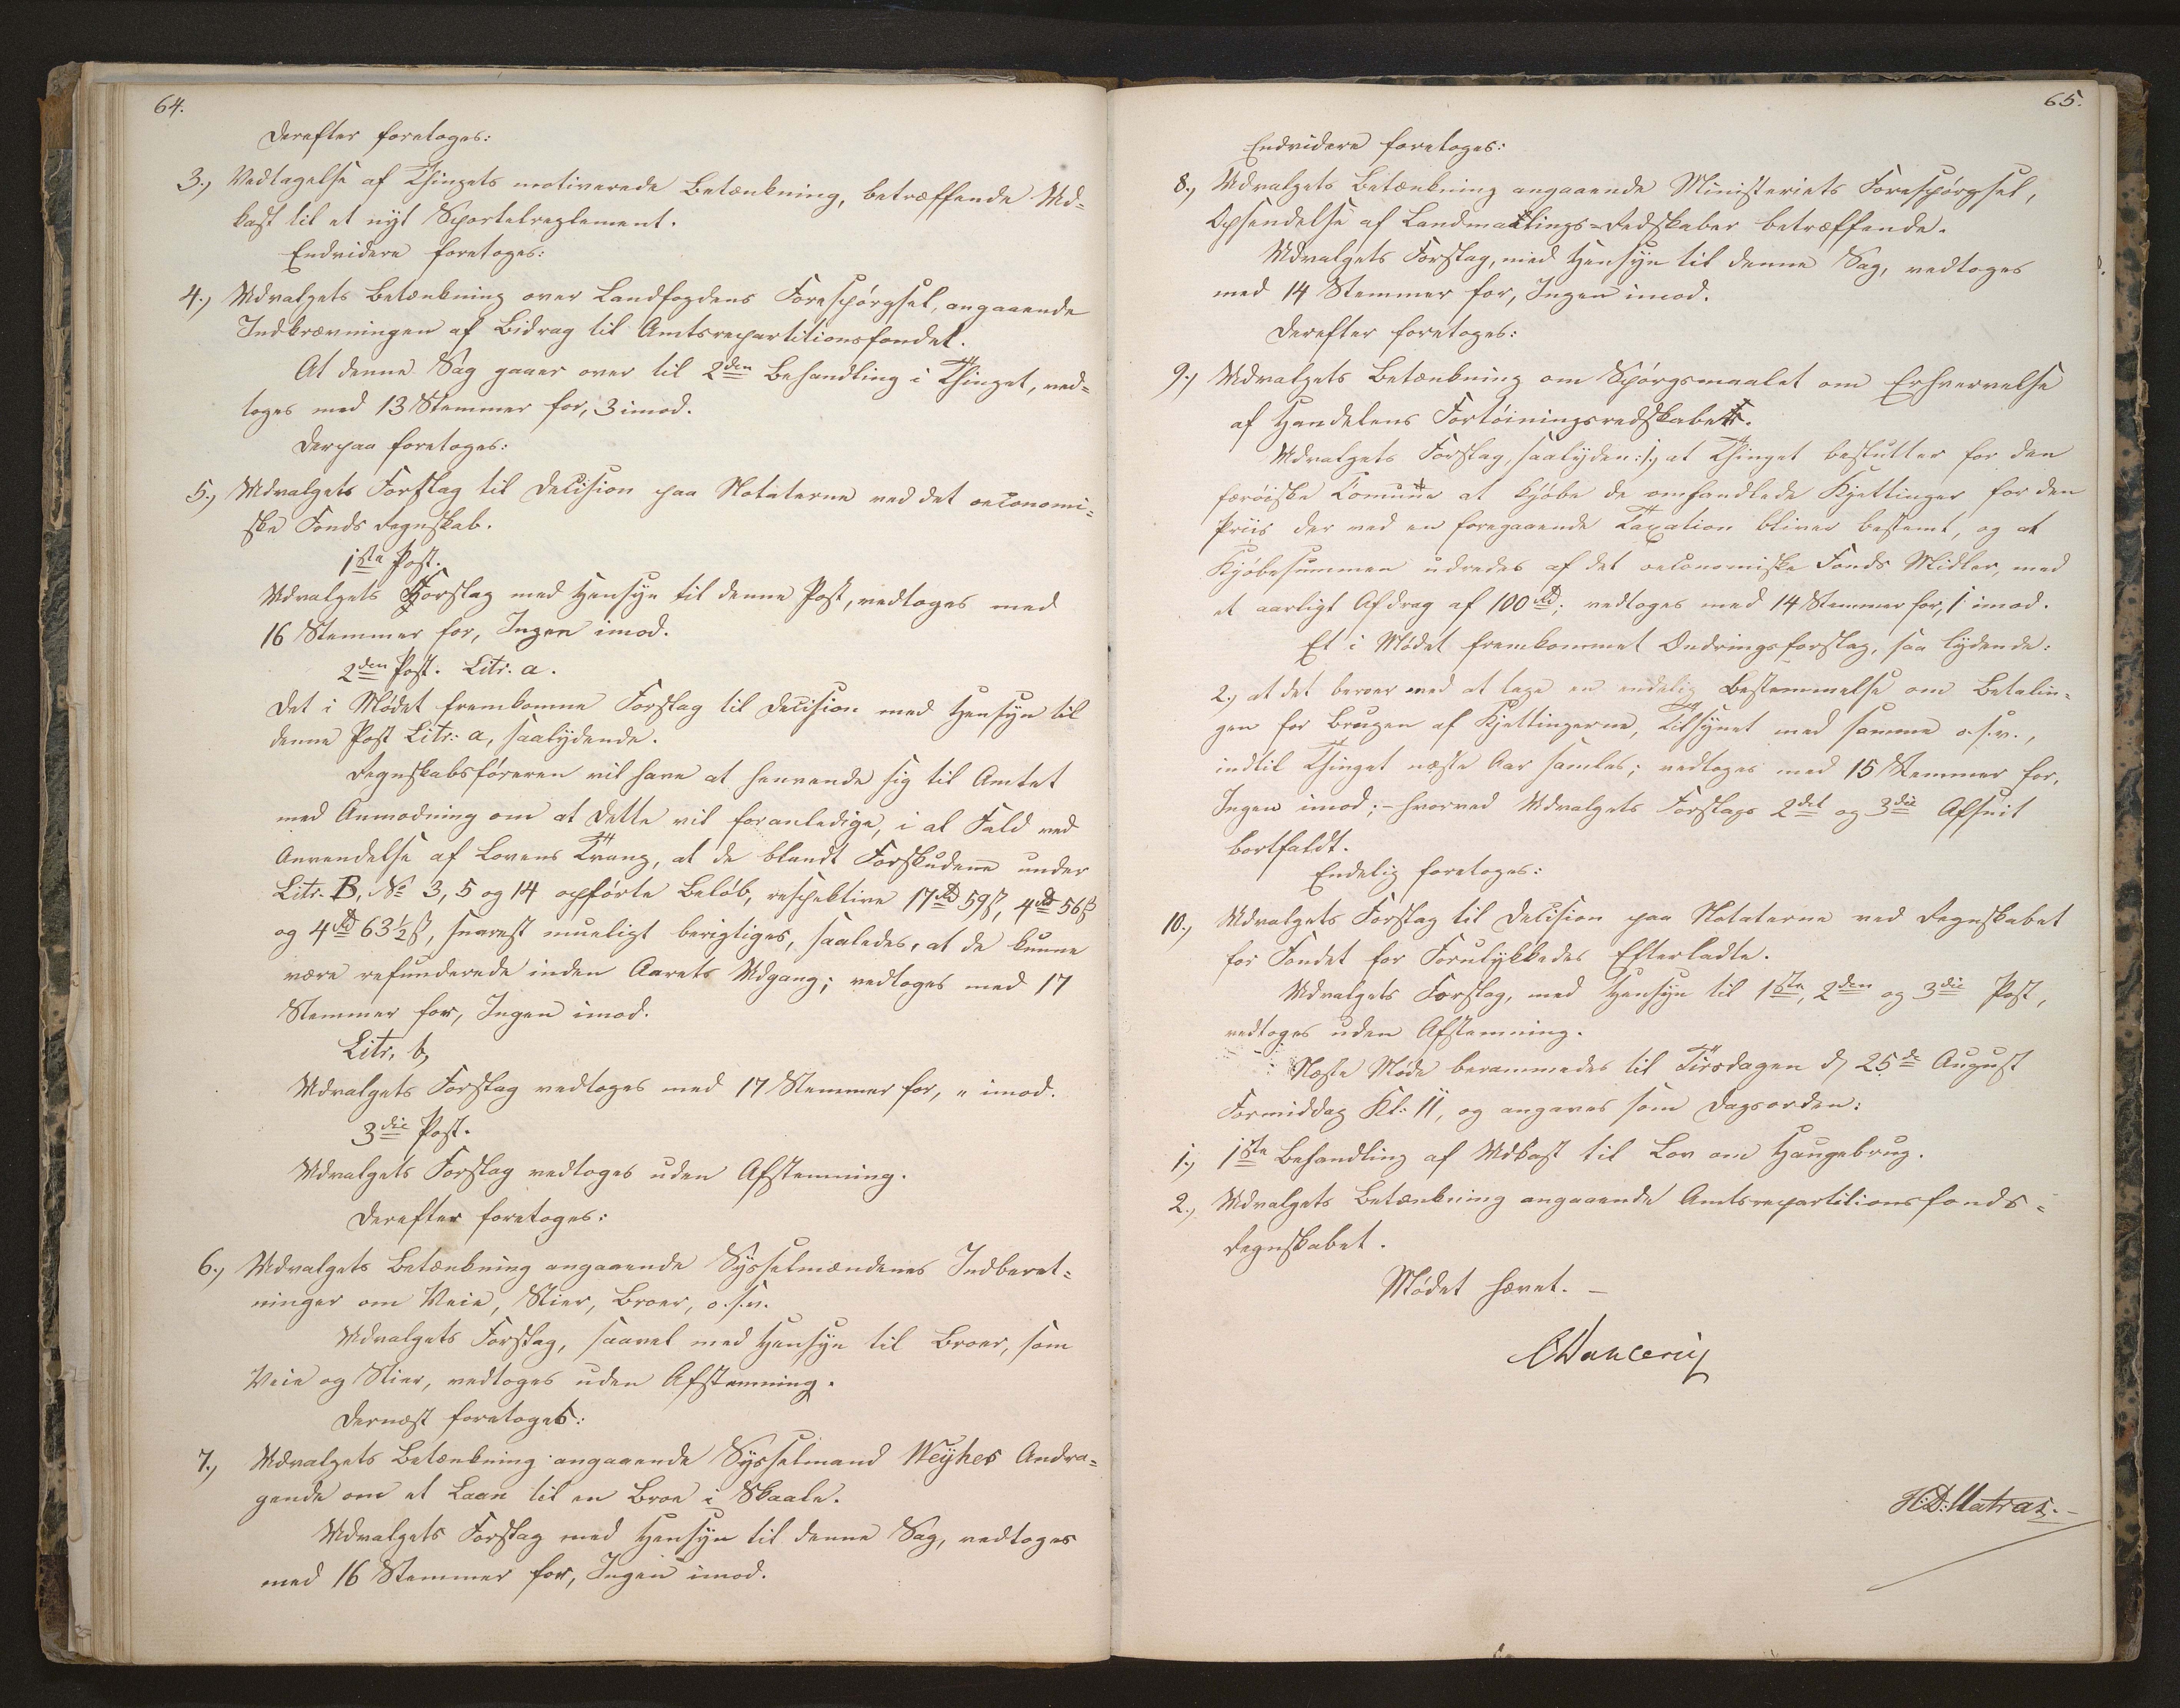 64.
Derefter foretoges:
3.) Vedtagelse af Thingets motiverede Betænkning, betræffende Ud-
kast til et nyt Sportelreglement.
Endvidere foretoges:
4.) Udvalgets Betænkning over Landfogdens Forespørgsel, angaaende
Indkrævningen af Bidrag til Amtsrepartitionsfondet.
At denne Sag gaaer over til 2den Behandling i Thinget, ved-
toges med 13 Stemmer for, 3 imod.
Derpaa foretoges:
5.) Udvalgets Forslag til Decision paa Notaterne ved det oeconomi-
ske Fonds Regnskab.
1ste Post.
Udvalgets Forslag med Hensyn til denne Post, vedtoges med
16 Stemmer for, Ingen imod.
2den Post. Litr. a.
Det i Mødet fremkomne Forslag til Decision med Hensyn til
denne Post Litr: a, saalydende.
Regnskabsføreren vil have at henvende sig til Amtet
med Anmodning om at dette vil foranledige, i al Fald ved
Anvendelse af Lovens Tvang, at de blandt Forskudene under
Litr. B. No 3, 5 og 14 opførte Beløb, respektive 17 Rd 59 ß, 4 Rd 56 ß
og 4 Rd 63½ ß, snarest mueligt berigtiges, saaledes, at de kunne
være refunderede inden Aarets Udgang; vedtoges med 17
Stemmer for, Ingen imod.
Litr. b,
Udvalgets Forslag vedtoges med 17 Stemmer for, " imod.
3die Post.
Udvalgets Forslag vedtoges uden Afstemning.
Derefter foretoges:
6.) Udvalgets Betænkning angaaende Sysselmændenes Indberet-
ninger om Veie, Stier, Broer, o.s.v.
Udvalgets Forslag, saavel med Hensyn til Broer, som
Veie og Stier, vedtoges uden Afstemning.
Dernæst foretoges:
7.) Udvalgets Betænkning angaaende Sysselmand Weyhes Andra-
gende om et Laan til en Broe i Skaale.
Udvalgets Forslag med Hensyn til denne Sag, vedtoges
med 16 Stemmer for, Ingen imod.
65.
Endvidere foretoges:
8.) Udvalgets Betænkning angaaende Ministeriets Forespørgsel,
Opsendelse af Landmaalings-Redskaber betræffende.
Udvalgets Forslag, med Hensyn til denne Sag, vedtoges
med 14 Stemmer for, Ingen imod.
Derefter foretoges:
9.) Udvalgets Betænkning om Spørgsmaalet om Erhvervelse
af Handelens Fortøiningsredskaber.
Udvalgets Forslag, saalyden: 1.) at Thinget beslutter for den
færøiske Comune at kjøbe de omhandlede Kjettinger for den
Priis der ved en foregaaende Taxation bliver bestemt, og at
Kjøbesummen udredes af det oeconomiske Fonds Midler, med
et aarligt Afdrag af 100 Rd; vedtoges med 14 Stemmer for, 1 imod.
Et i Mødet fremkommet Ændringsforslag, saa lydende:
2.) at det beroer med at tage en endelig Bestemmelse om Betalin-
gen for Brugen af Kjettingerne, Tilsynet med samme o.s.v.,
indtil Thinget næste Aar samles; vedtoges med 15 Stemmer for,
Ingen imod; - hvorved Udvalgets Forslags 2det og 3die Afsnit
bortfaldt.
Endelig foretoges:
10.) Udvalgets Forslag til Decision paa Notaterne ved Regnskabet
for Fondet for Forulykkedes Efterladte.
Udvalgets Forslag, med Hensyn til 1ste, 2den og 3die Post,
vedtoges uden Afstemning.
Næste Møde berammedes til Tirsdagen d. 25de August
Formiddag Kl: 11, og angaves som Dagsorden:
1.) 1ste Behandling af Udkast til Lov om Haugebrug.
2.) Udvalgets Betænkning angaaende Amtsrepartitionsfonds-
Regnskabet.
Mødet hævet. -
H:D: Matras. -